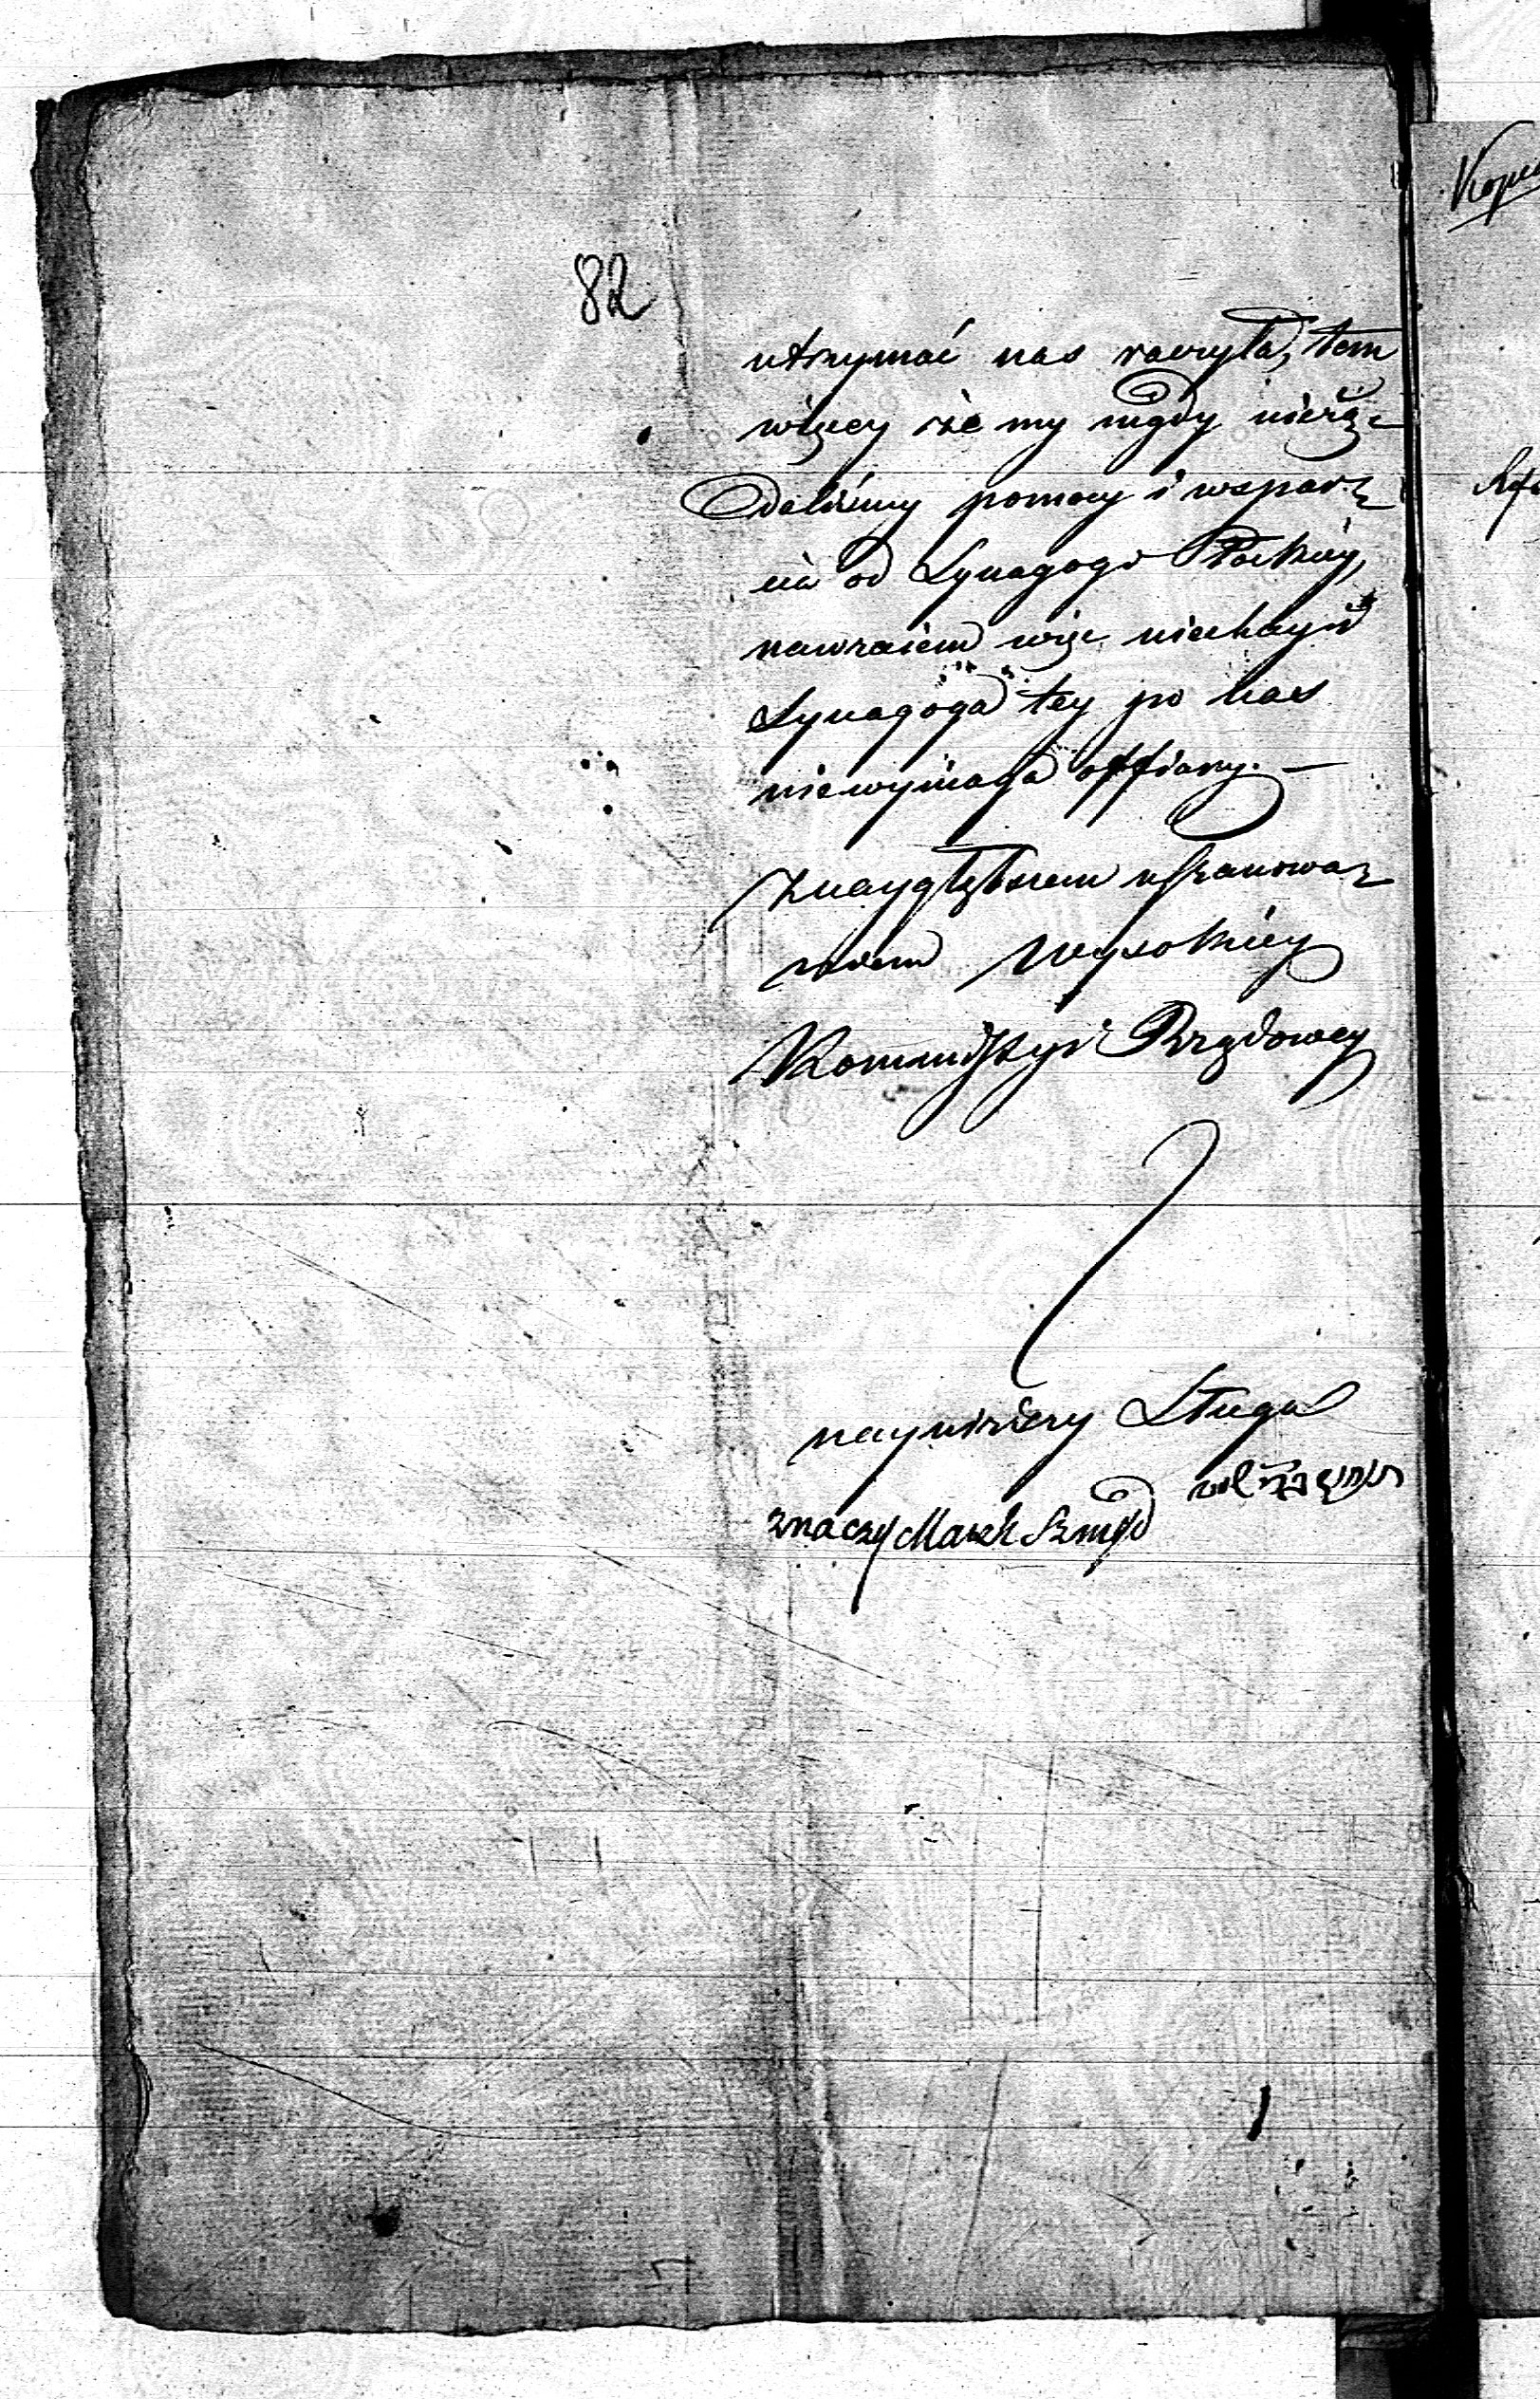 82
utrzymać nas raczyła, tem
więcey że my nigdy nieżą-
daliśmy pomocy i wspar-
cia od Synagogi Płockiéy,
nawzaiem więc niechayż
Synagoga tey po nas
niewymaga offiary. —
Z nayglębszem uszanowa-
niem Wysokiéy
Kommissyi Rządowey
nayniższy Sługa
znaczy Marek Szmyd
Kopia